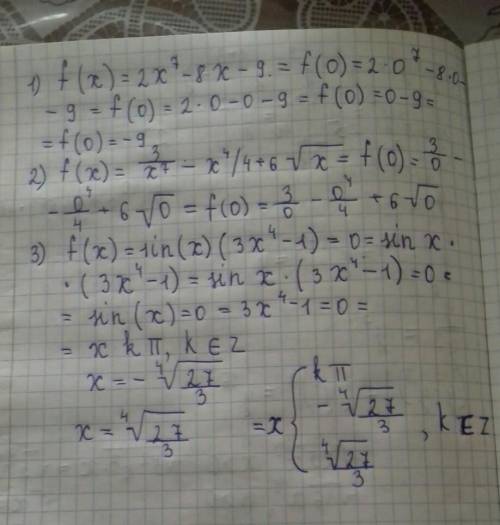 1) f(x) = 2x⁷ - 8x - 9. = f(0) = 2·0⁷ - 8·0-
- 9 = f(0) = 2·0 - 0 - 9 = f(0) = 0 - 9 =
= f(0) = -9
2) f(x) = 3/x⁷ - x⁴/4 + 6√x = f(0) = 3/0 -
- 0⁴/4 + 6√0 = f(0) = 3/0 - 0⁴/4 + 6√0
3) f(x) = sin(x)(3x⁴-1) = 0 = sin x ·
·(3x⁴-1) = sin x · (3x⁴-1) = 0 =
= sin(x) = 0 = 3x⁴-1 = 0 =
= x kπ, k ∈ Z
x = - ⁴√27/3
x = ⁴√27/3 = x { kπ, - ⁴√27/3, ⁴√27/3 , k ∈ Z